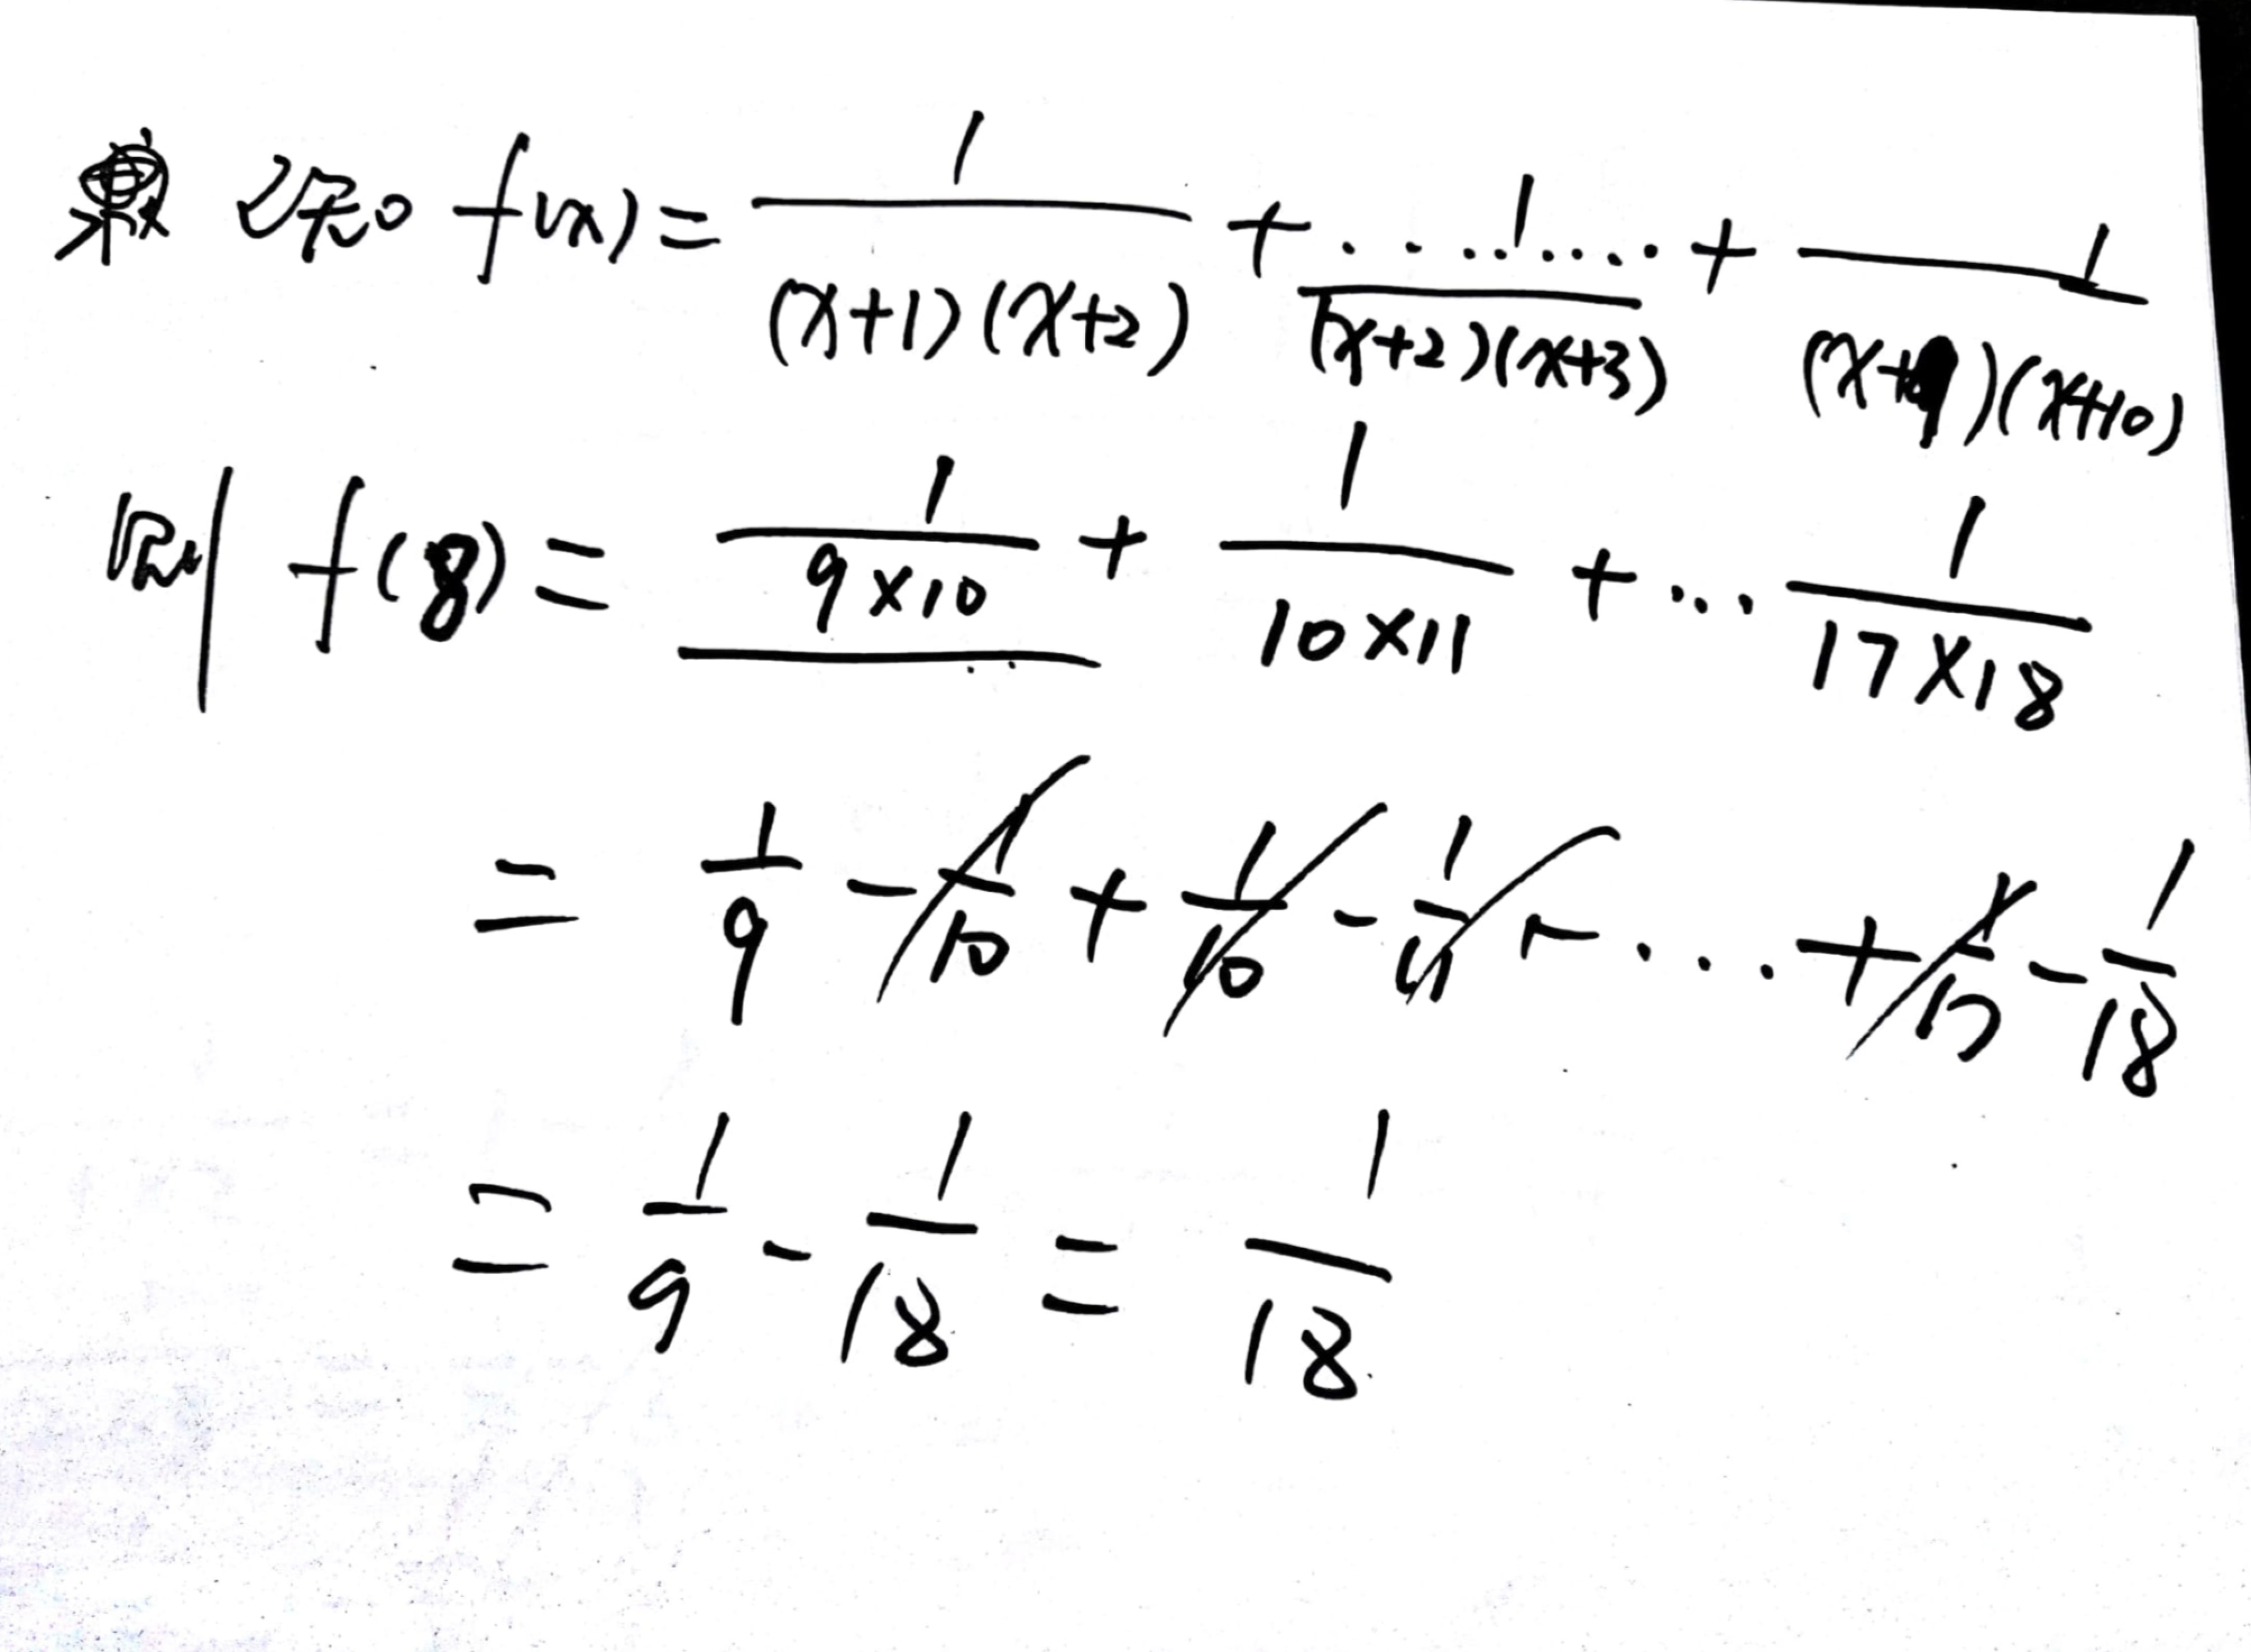 设 f(x) = 1/((x+1)(x+2)) + ...1.... /((x+2)(x+3)) + 1/((x+9)(x+10))
则 f(8) = 1/(9×10) + 1/(10×11) + ... 1/(17×18)
= 1/9 - 1/10 + 1/10 - 1/11 - ... + 1/17 - 1/18
= 1/9 - 1/18 = 1/18